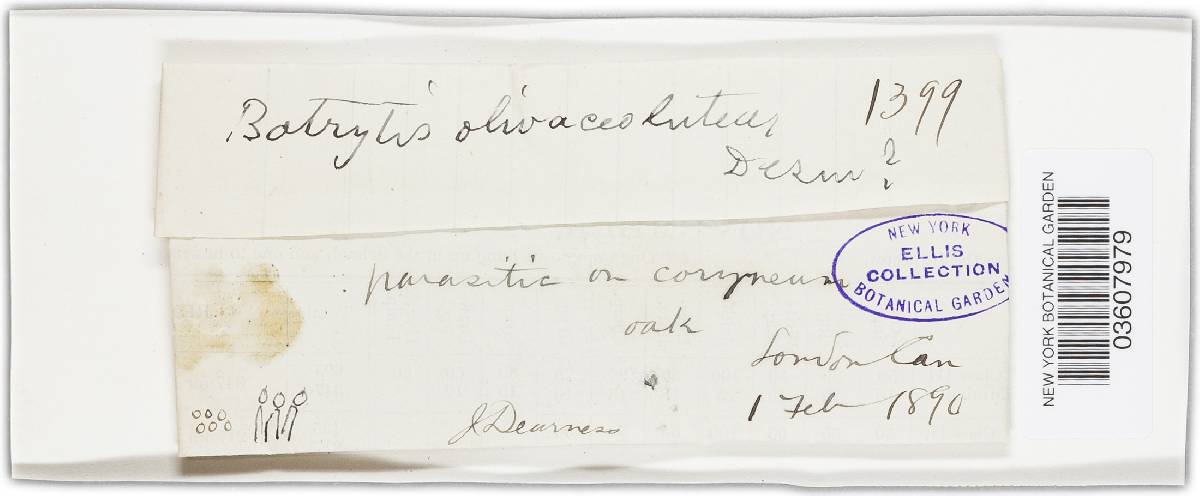 Botrytis olivaceolutea, 1399
Desm?
parasitic on coryneum
oak
London Can
1 Feb 1890
J Dearness
NEW YORK
ELLIS
COLLECTION
BOTANICAL GARDEN
NEW YORK BOTANICAL GARDEN
03607979